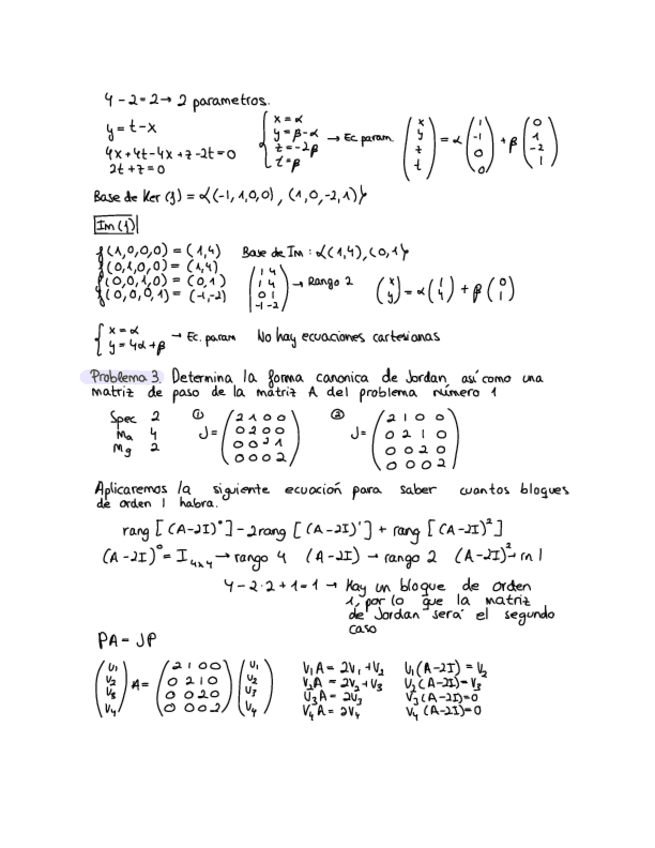 4 - 2 = 2 → 2 parametros.
y = t - x
4x + 4t - 4x + z - 2t = 0
2t + z = 0
{ x = α
y = β - α
z = -2β
t = β → Ec param. (x y z t) = α (1 -1 0 0) + β (0 1 -2 1)
Base de Ker (f) = {(-1, 1, 0, 0), (1, 0, -2, 1)}
Im (f)
f(1,0,0,0) = (1,4) Base de Im : {(1,4), (0,1)}
f(0,1,0,0) = (1,4)
f(0,0,1,0) = (0,1)
f(0,0,0,1) = (-1,-2)
(1 4
1 4
0 1
-1 -2) → Rango 2 (x y) = α (1 4) + β (0 1)
{ x = α
y = 4α + β → Ec. param No hay ecuaciones cartesianas
Problema 3. Determina la forma canonica de Jordan, así como una
matriz de paso de la matriz A del problema número 1
Spec 2
Ma 4
Mg 2
① J = (2 1 0 0
0 2 0 0
0 0 2 1
0 0 0 2)
② J = (2 1 0 0
0 2 1 0
0 0 2 0
0 0 0 2)
Aplicaremos la siguiente ecuación para saber cuantos bloques
de orden 1 habra.
rang [(A-2I)⁰] - 2rang [(A-2I)¹] + rang [(A-2I)²]
(A-2I)⁰ = I₄ₓ₄ → rango 4 (A-2I) → rango 2 (A-2I)² → rn 1
4 - 2·2 + 1 = 1 → Hay un bloque de orden
1, por lo que la matriz
de Jordan será el segundo
caso
PA = JP
(v₁
v₂
v₃
v₄) A = (2 1 0 0
0 2 1 0
0 0 2 0
0 0 0 2) (v₁
v₂
v₃
v₄)
v₁A = 2v₁ + v₂ v₁(A-2I) = v₂
v₂A = 2v₂ + v₃ v₂(A-2I) = v₃
v₃A = 2v₃ v₃(A-2I) = 0
v₄A = 2v₄ v₄(A-2I) = 0